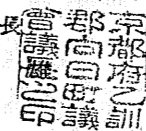 京都府乙訓
郡向日町議
會議長之印
長